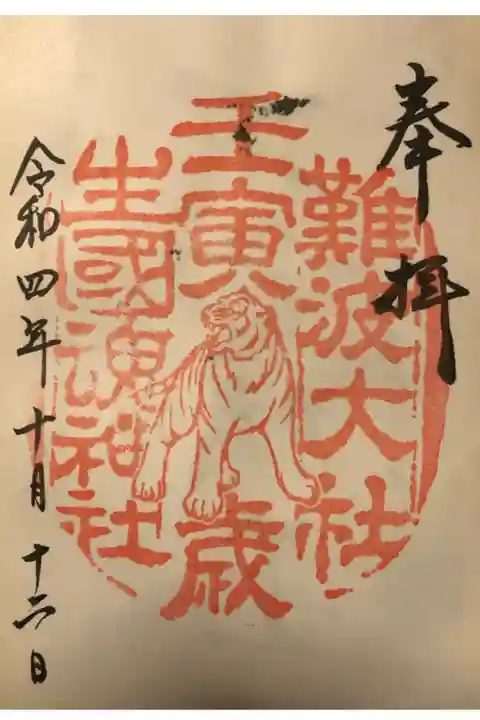 奉拝
難波大社
壬寅歳
生國魂神社
令和四年十月十六日